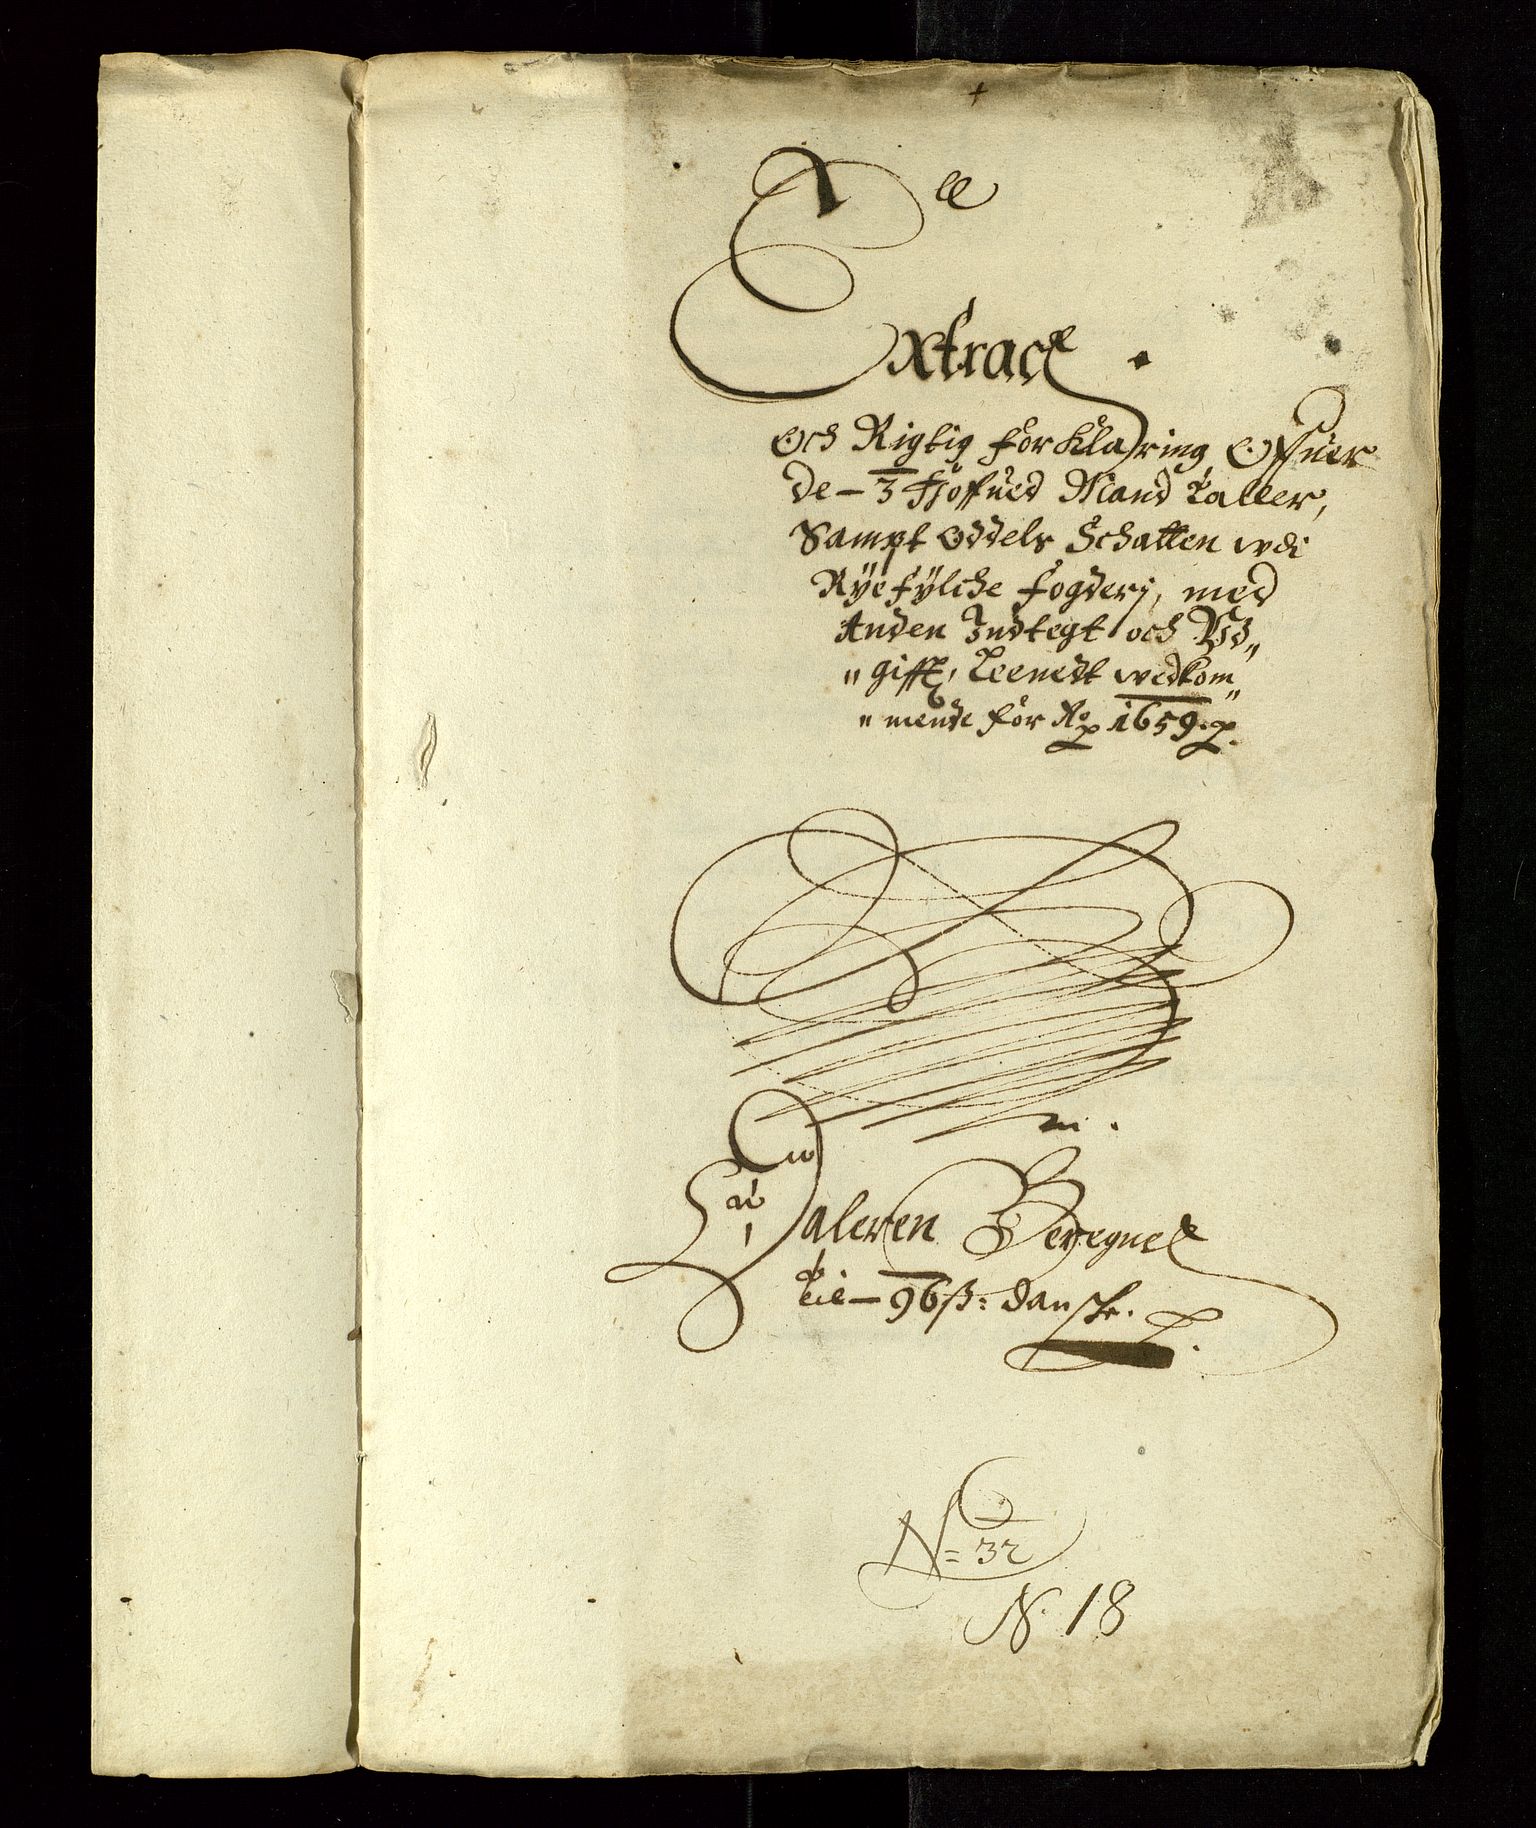 Extract
Och Rigtig forklaring Offuer
de - 3 Hoffued Mand taller,
Sampt Oddels Schatten wdi
Ryefylche fogderj, med
Anden Indtegt och Vd„
„gifft, Leenedt wedkom„
„mende for Ao 1659.
Daleren Beregnet
til - 96 ß: danske.
N = 32
N. 18